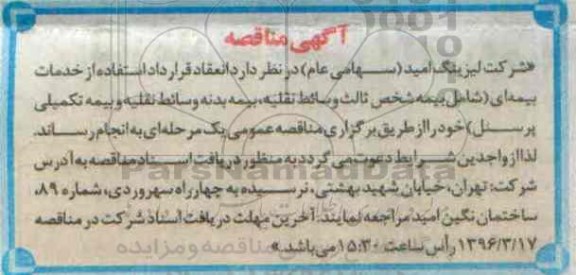 آگهی مناقصه
«شرکت لیزینگ امید (سهامی عام) در نظر دارد انعقاد قرارداد استفاده از خدمات
بیمه‌ای (شامل بیمه شخص ثالث وسائط نقلیه، بیمه بدنه وسائط نقلیه و بیمه تکمیلی
پرسنل) خود را از طریق برگزاری مناقصه عمومی یک مرحله‌ای به انجام رساند.
لذا از واجدین شرایط دعوت می گردد به منظور دریافت اسناد مناقصه به آدرس
شرکت: تهران، خیابان شهید بهشتی، نرسیده به چهارراه سهروردی، شماره ۸۹،
ساختمان نگین امید مراجعه نمایند. آخرین مهلت دریافت اسناد شرکت در مناقصه
۱۳۹۶/۳/۱۷ رأس ساعت ۱۵:۳۰ می باشد.»
ParsNamadData